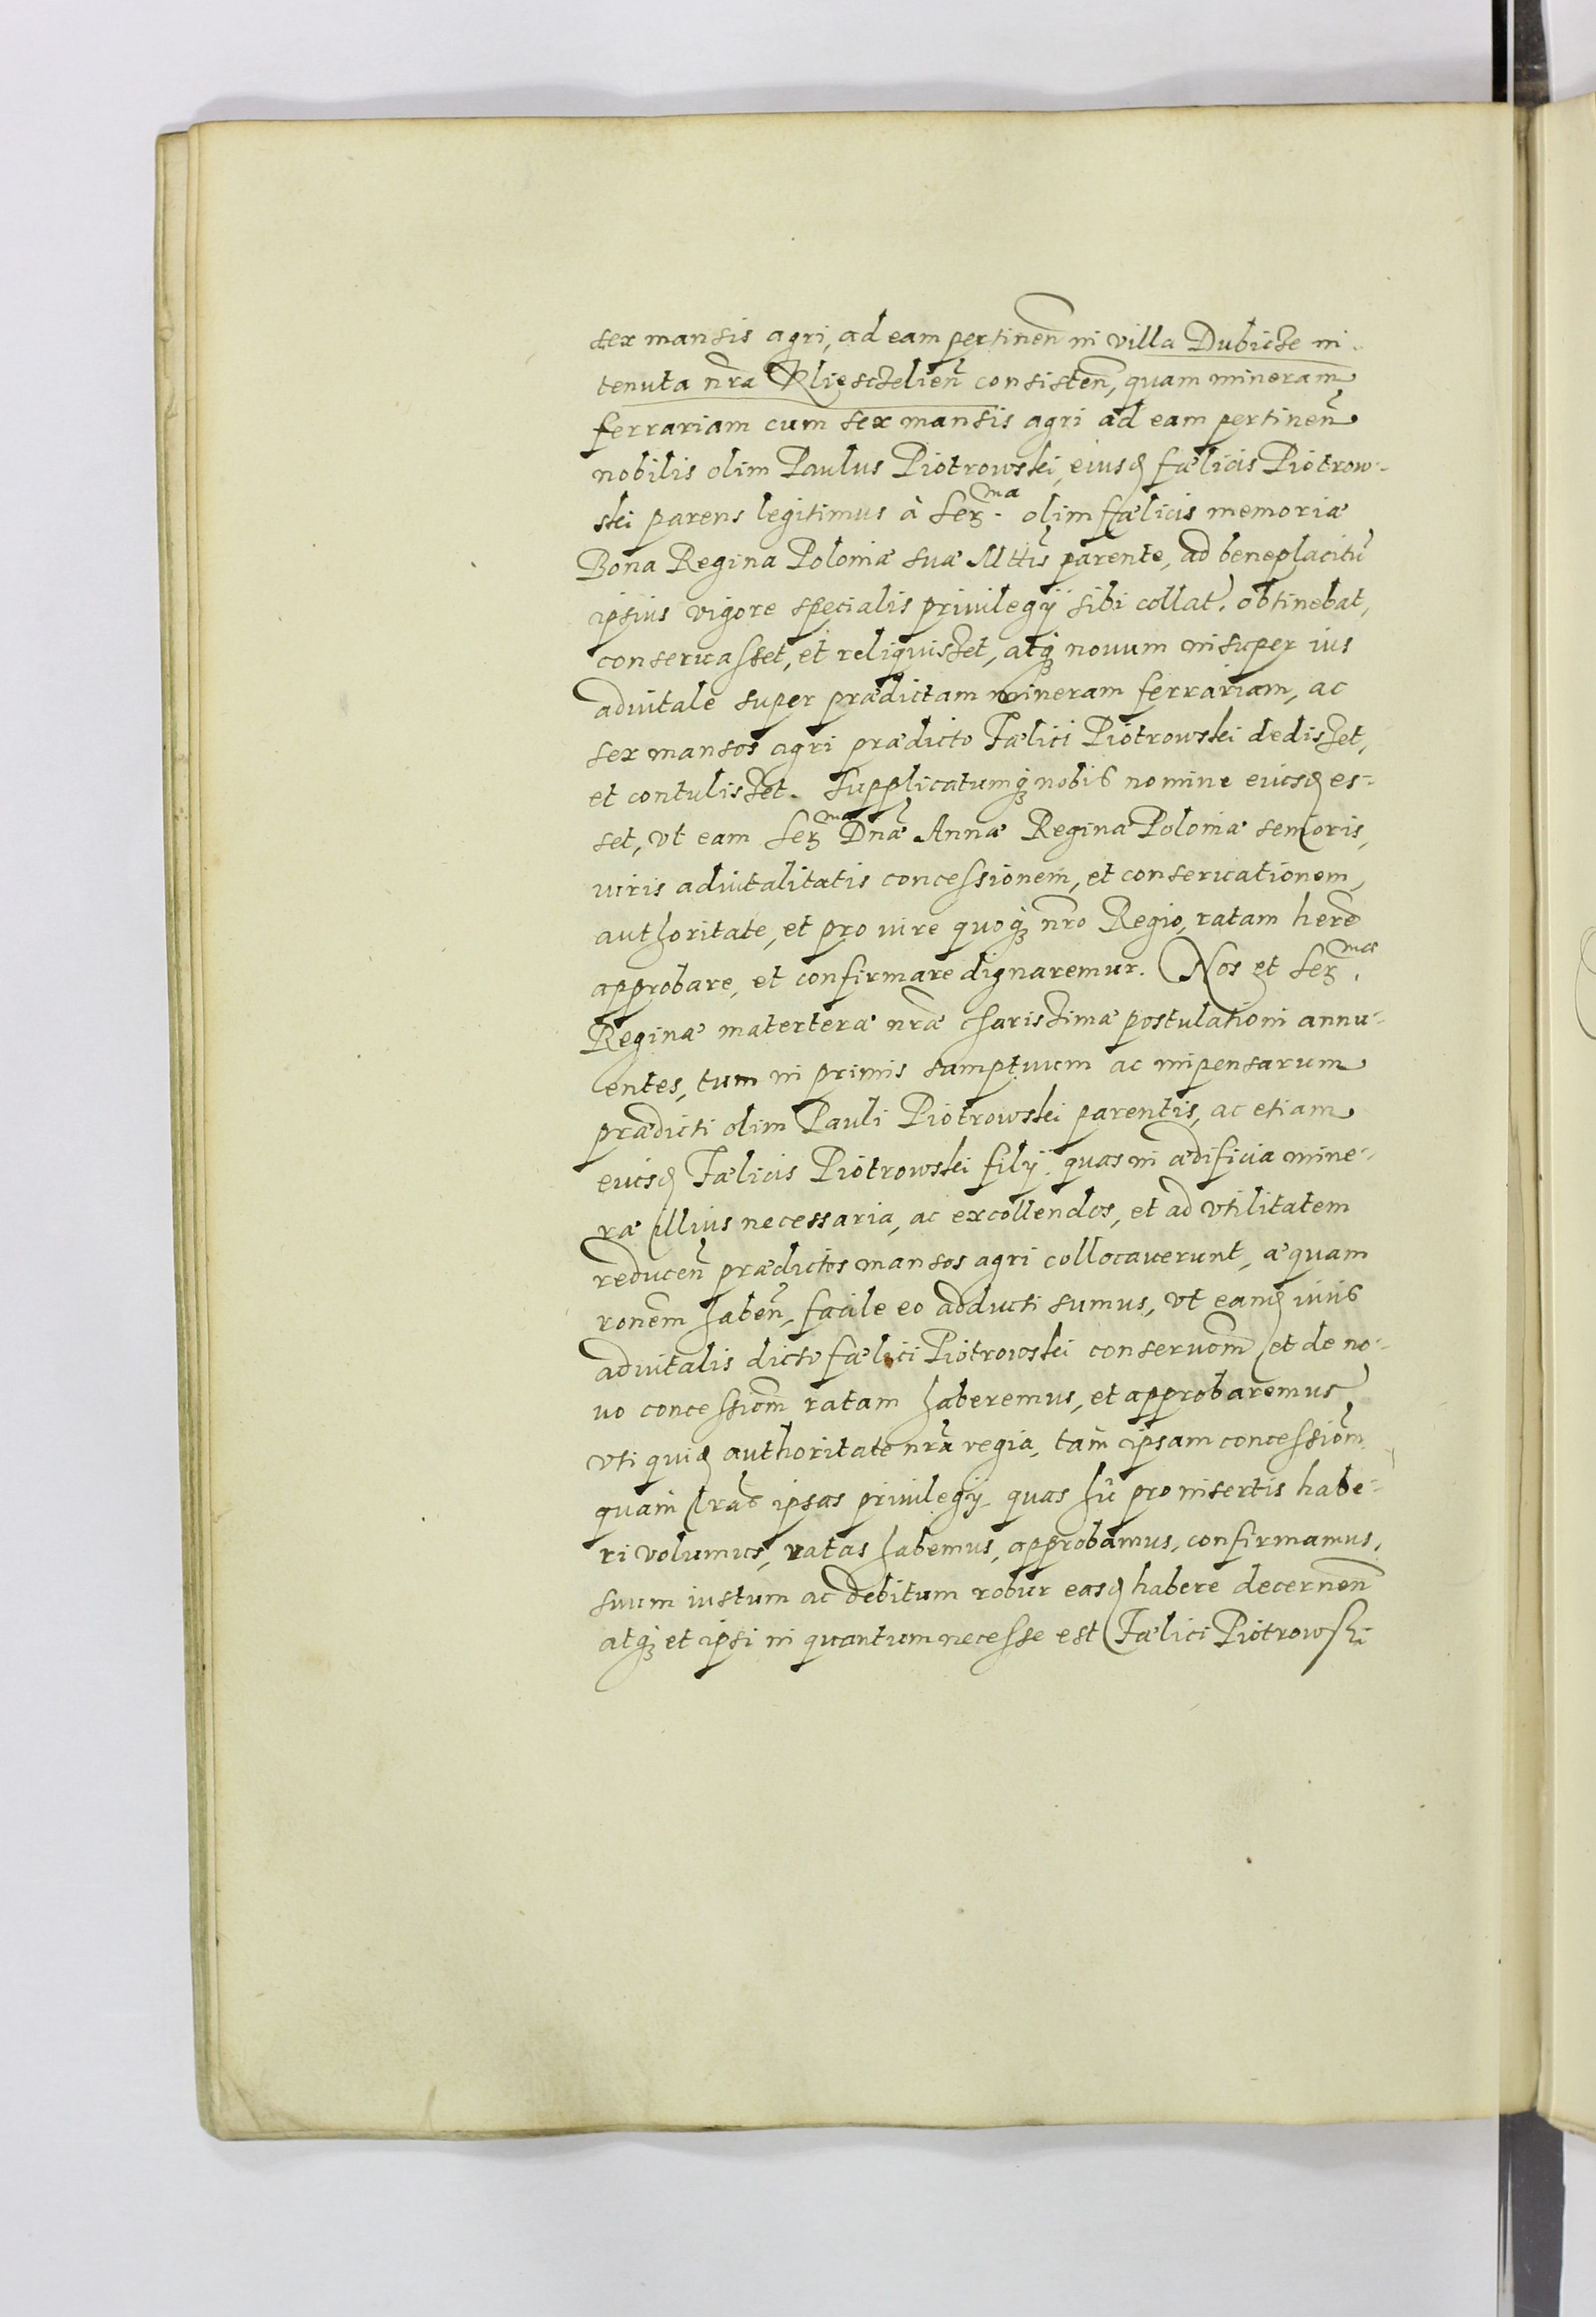 sex mansis agri, ad eam pertinen̄ in villa Dubicze in
tenuta nr̄a Klieszczelien̄ consisten̄, quam mineram
ferrariam cum sex mansis agri ad eam pertinen̄
nobilis olim Paulus Piotrowski, eiusd Fælicis Piotrow-
ski parens legitimus à Ser.ma olim fælicis memoriæ
Bona Regina Poloniæ suæ Mttis parente, ad beneplacitū
ipsius vigore specialis priuilegij sibi collat. obtinebat,
conseruasset, et reliquisset, atq; nouum insuper ius
aduitale super prædictam mineram ferrariam, ac
sex mansos agri prædicto Fælici Piotrowski dedisset,
et contulisset. Supplicatumq; nobis nomine eiusd es-
set, vt eam Ser.ma Dnæ Annæ Reginæ Poloniæ senioris,
iuris aduitalitatis concessionem, et conseruationem,
authoritate, et pro iure quoq; nr̄o Regio, ratam her̄e
approbare, et confirmare dignaremur. Nos et Ser.mæ
Reginæ materteræ nr̄æ charissimæ postulationi annu-
entes, tum in primis sumptuum ac inpensarum
prædicti olim Pauli Piotrowski parentis, ac etiam
eiusd Fælicis Piotrowski filij, quas in ædificia mine-
ræ illius necessaria, ac excollendos, et ad vtilitatem
reducen̄ prædictos mansos agri collocauerunt, æquam
ronem̄ haben̄, facile eo adducti sumus, vt eamd iuris
aduitalis dicto Fælici Piotrowski conseruom̄ et de no-
uo concessiom̄ ratam haberemus, et approbaremus
vti quid authoritate nr̄a regia, tam ipsam concessiom̄
quam lrās ipsas priuilegij, quas hīc pro insertis habe-
ri volumus, ratas habemus, approbamus, confirmamus,
suum iustum ac debitum robur easd habere decernen̄
atq; et ipsi in quantum necesse est Fælici Piotrowski